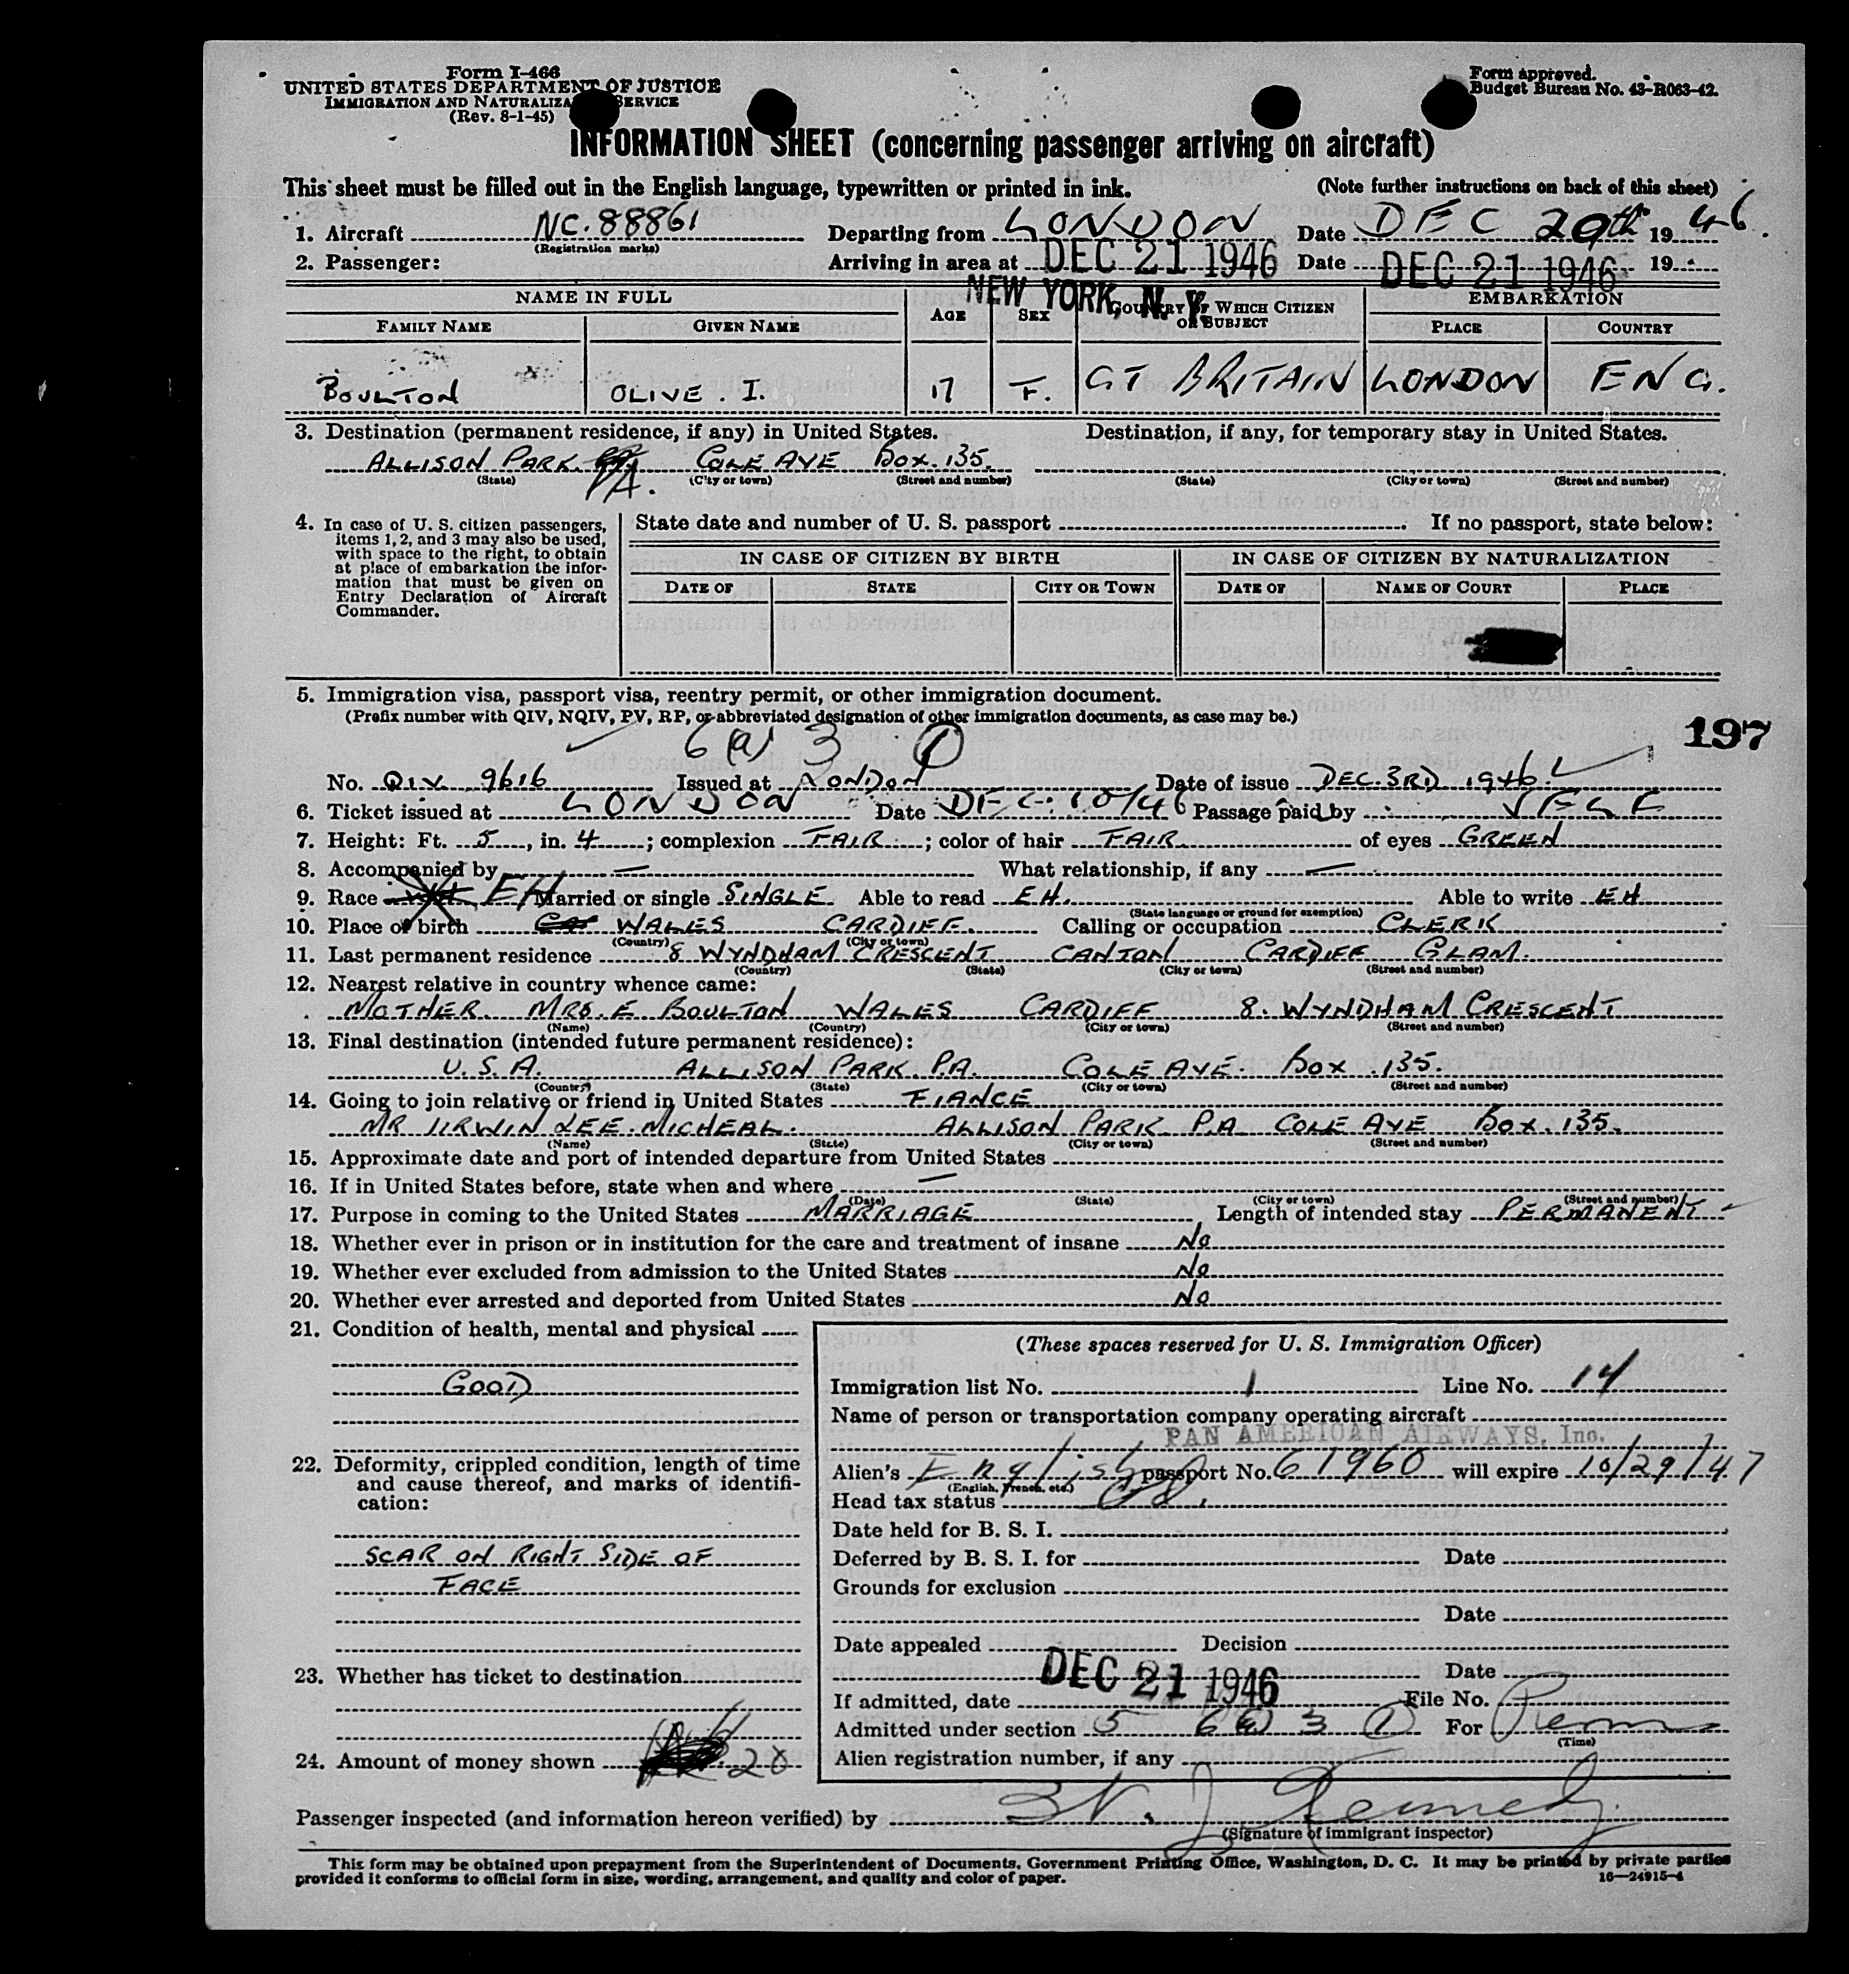 Form I-466
UNITED STATES DEPARTMENT OF JUSTICE
IMMIGRATION AND NATURALIZATION SERVICE
(Rev. 8-1-45)
Form approved.
Budget Bureau No. 43-R063-42.
INFORMATION SHEET (concerning passenger arriving on aircraft)
This sheet must be filled out in the English language, typewritten or printed in ink. (Note further instructions on back of this sheet)
1. Aircraft NC. 88861 Departing from LONDON Date DEC 20th 1946.
(Registration marks)
2. Passenger: Arriving in area at DEC 21 1946 Date DEC 21 1946 19
NEW YORK, N. Y.
NAME IN FULL AGE SEX COUNTRY OF WHICH CITIZEN OR SUBJECT EMBARKATION
FAMILY NAME GIVEN NAME PLACE COUNTRY
BOULTON OLIVE. I. 17 F. GT BRITAIN LONDON ENG.
3. Destination (permanent residence, if any) in United States. Destination, if any, for temporary stay in United States.
ALLISON PARK. PA. COLE AVE BOX. 135.
(State) (City or town) (Street and number) (State) (City or town) (Street and number)
4. In case of U. S. citizen passengers, items 1, 2, and 3 may also be used, with space to the right, to obtain at place of embarkation the information that must be given on Entry Declaration of Aircraft Commander.
State date and number of U. S. passport If no passport, state below:
IN CASE OF CITIZEN BY BIRTH IN CASE OF CITIZEN BY NATURALIZATION
DATE OF STATE CITY OR TOWN DATE OF NAME OF COURT PLACE
5. Immigration visa, passport visa, reentry permit, or other immigration document.
(Prefix number with QIV, NQIV, PV, RP, or abbreviated designation of other immigration documents, as case may be.)
197
6(a) 3 (1)
No. QIV 9616 Issued at LONDON Date of issue DEC. 3RD 1946
6. Ticket issued at LONDON Date DEC. 10/46 Passage paid by SELF
7. Height: Ft. 5, in. 4; complexion FAIR; color of hair FAIR of eyes GREEN
8. Accompanied by — What relationship, if any —
9. Race EH Married or single SINGLE Able to read EH. Able to write EH
(State language or ground for exemption)
10. Place of birth WALES CARDIFF. Calling or occupation CLERK
(Country) (City or town)
11. Last permanent residence 8 WYNDHAM CRESCENT CANTON CARDIFF GLAM.
(Country) (State) (City or town) (Street and number)
12. Nearest relative in country whence came:
MOTHER. MRS. E BOULTON WALES CARDIFF 8. WYNDHAM CRESCENT
(Name) (Country) (City or town) (Street and number)
13. Final destination (intended future permanent residence):
U. S. A. ALLISON PARK. P.A. COLE AVE. BOX. 135.
(Country) (State) (City or town) (Street and number)
14. Going to join relative or friend in United States FIANCE
MR IIRWIN LEE. MICHEAL. ALLISON PARK P.A COLE AVE BOX. 135.
(Name) (State) (City or town) (Street and number)
15. Approximate date and port of intended departure from United States
16. If in United States before, state when and where —
(Date) (State) (City or town) (Street and number)
17. Purpose in coming to the United States MARRIAGE Length of intended stay PERMANENT
18. Whether ever in prison or in institution for the care and treatment of insane No
19. Whether ever excluded from admission to the United States No
20. Whether ever arrested and deported from United States No
21. Condition of health, mental and physical
GOOD
22. Deformity, crippled condition, length of time and cause thereof, and marks of identification:
SCAR ON RIGHT SIDE OF
FACE
23. Whether has ticket to destination
24. Amount of money shown 20
(These spaces reserved for U. S. Immigration Officer)
Immigration list No. 1 Line No. 14
Name of person or transportation company operating aircraft
PAN AMERICAN AIRWAYS, Inc.
Alien's English passport No. 61960 will expire 10/29/47
(English, French, etc.)
Head tax status
Date held for B. S. I.
Deferred by B. S. I. for Date
Grounds for exclusion
Date
Date appealed Decision
Date
If admitted, date DEC 21 1946 File No.
Admitted under section 5 6(a) 3 (1) For Perm
(Time)
Alien registration number, if any
Passenger inspected (and information hereon verified) by J Kennedy
(Signature of immigrant inspector)
This form may be obtained upon prepayment from the Superintendent of Documents, Government Printing Office, Washington, D. C. It may be printed by private parties
provided it conforms to official form in size, wording, arrangement, and quality and color of paper. 16—24915-4